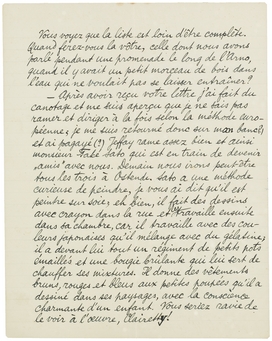 Vous voyez que la liste est loin d'être complète.
Quand ferez-vous la vôtre, celle dont nous avons
parlé pendant une promenade le long de l'Arno,
quand il y avait un petit morceau de bois dans
l'eau qui ne voulait pas se laisser entraîner?
— Après avoir reçu votre lettre j'ai fait du
canotage et me suis aperçu que je ne sais pas
ramer et diriger à la fois selon la méthode euro-
péenne, je me suis retourné donc sur mon banc
et ai pagayé (?) Teffay rame assez bien et ainsi
monsieur Také Sato qui est en train de devenir
"amis" avec nous. Demain nous irons peut-être
tous les trois à Ostende. Sato a une méthode
curieuse de peindre, je vous ai dit qu'il est
peintre sur soie, eh bien, il fait des dessins
avec crayon dans la rue et les travaille ensuite
dans sa chambre, car il travaille avec des cou-
leurs japonaises qu'il mélange avec du gélatine,
il a devant lui tout un régiment de petits pots
émaillés et une bougie brûlante qui lui sert de
chauffer ses mixtures. Il donne des vêtements
bruns, rouges et bleus aux petites poupées qu'il a
dessiné dans ses paysages, avec la conscience
charmante d'un enfant. Vous seriez ravie de
le voir à l'œuvre, Clairette!